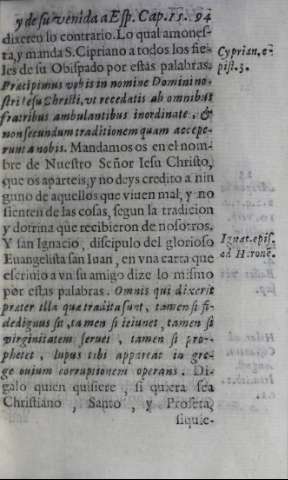 y de su venida a Esp. Cap. 15. 94
dixeren lo contrario. Lo qual amones-
ta, y manda S. Cipriano a todos los fie-
les de su Obispado por estas palabras.
Cyprian. e-
pist. 3.
Præcipimus vobis in nomine Domini no-
stri Iesu Christi, vt recedatis ab omnibus
fratribus ambulantibus inordinate, &
non secundum traditionem quam accepe-
runt a nobis. Mandamos os en el nom-
bre de Nuestro Señor Iesu Christo,
que os aparteis, y no deys credito a nin
guno de aquellos que viuen mal, y no
sienten de las cosas, segun la tradicion
y dotrina que recibieron de nosotros.
Y san Ignacio, discipulo del glorioso
Euangelista san Iuan, en vna carta que
Ignat. epis.
ad Heronē.
escriuio a vn su amigo dize lo mismo
por estas palabras. Omnis qui dixerit
præter illa quæ tradita sunt, tamen si fi-
dedignus sit, tamen si ieiunet, tamen si
virginitatem seruet, tamen si pro-
phetet, lupus tibi appareat in gre-
ge ouium corruptionem operans. Di-
galo quien quisiere, si quiera sea
Christiano, Santo, y Profeta,
siquie-